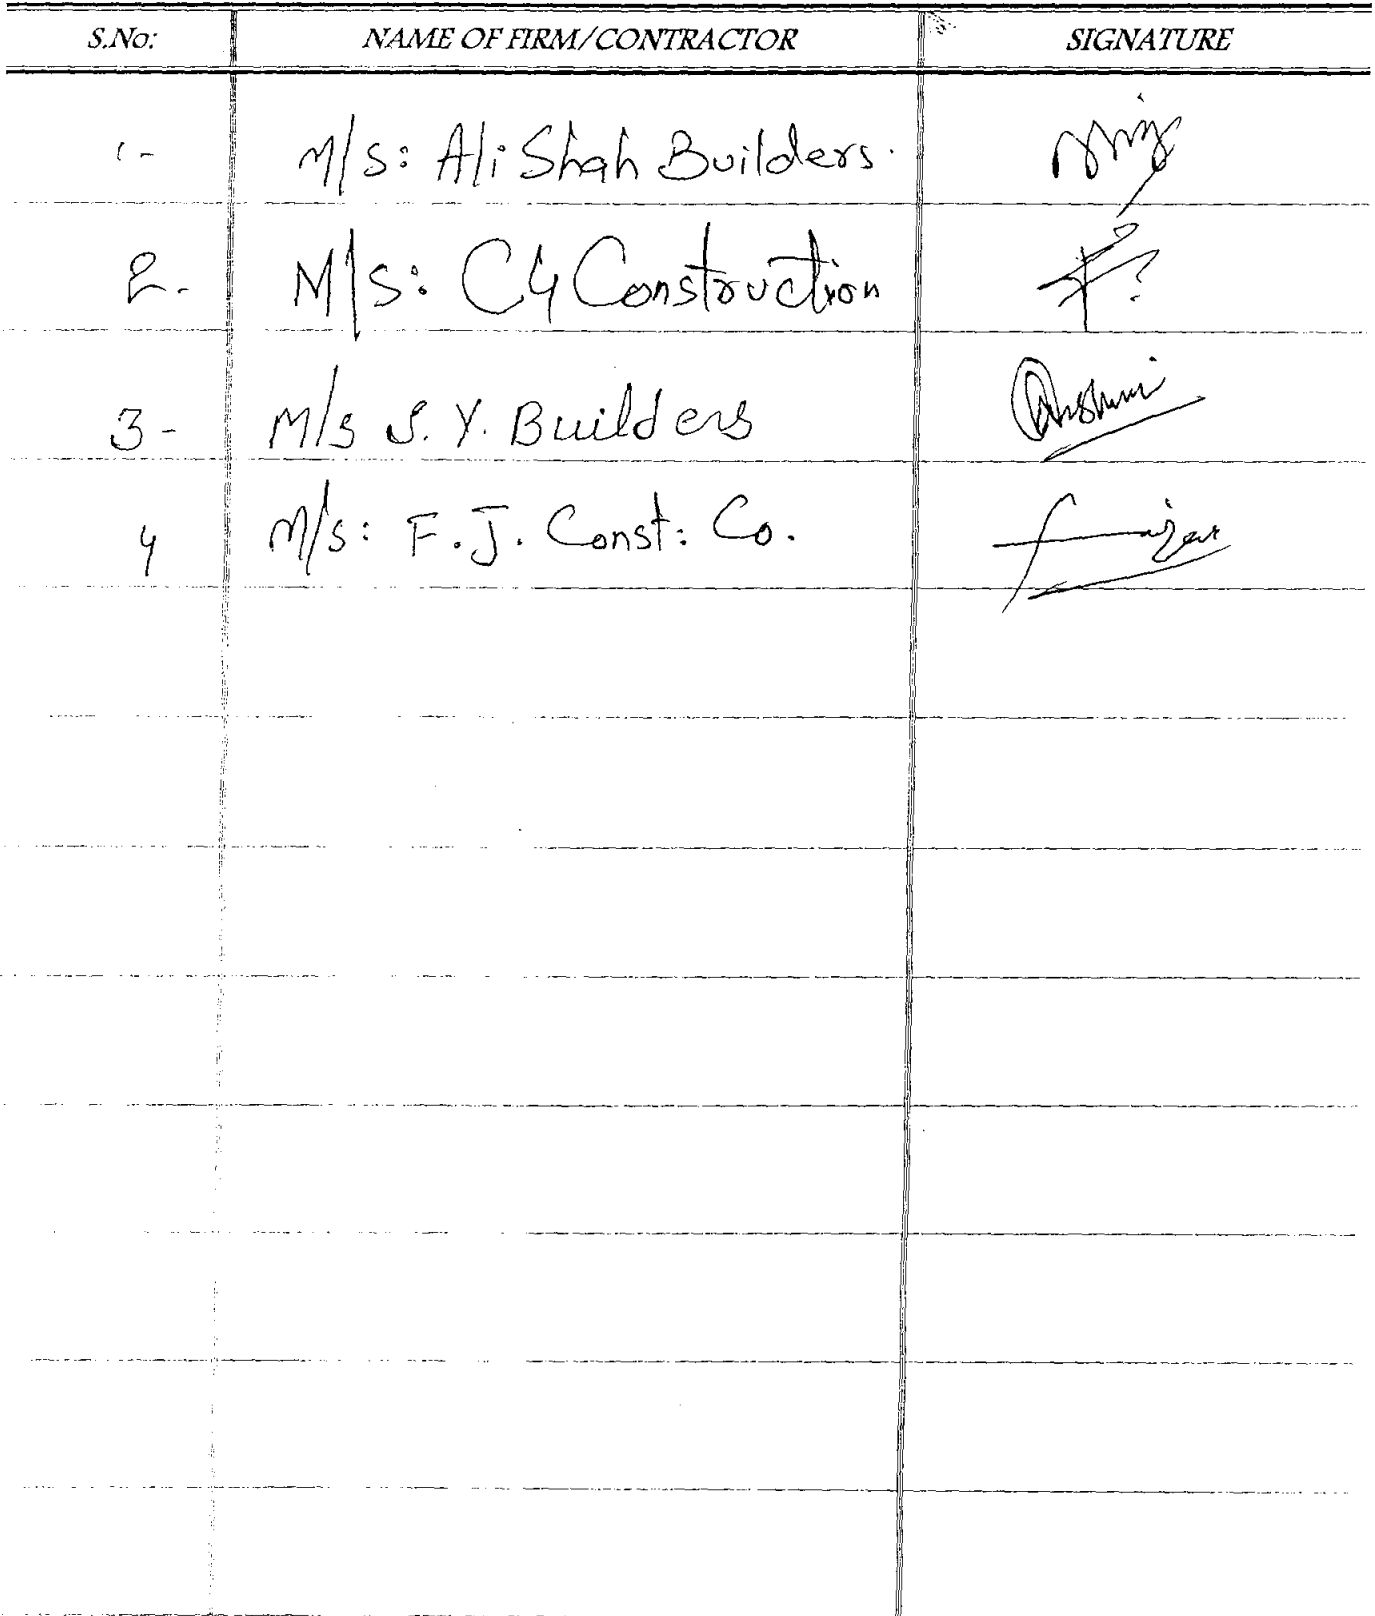 S.No: NAME OF FIRM/CONTRACTOR SIGNATURE
1- M/S: Ali Shah Builders.
2. M/S: C4 Construction
3- M/s S.Y. Builders
4 M/s: F.J. Const: Co.